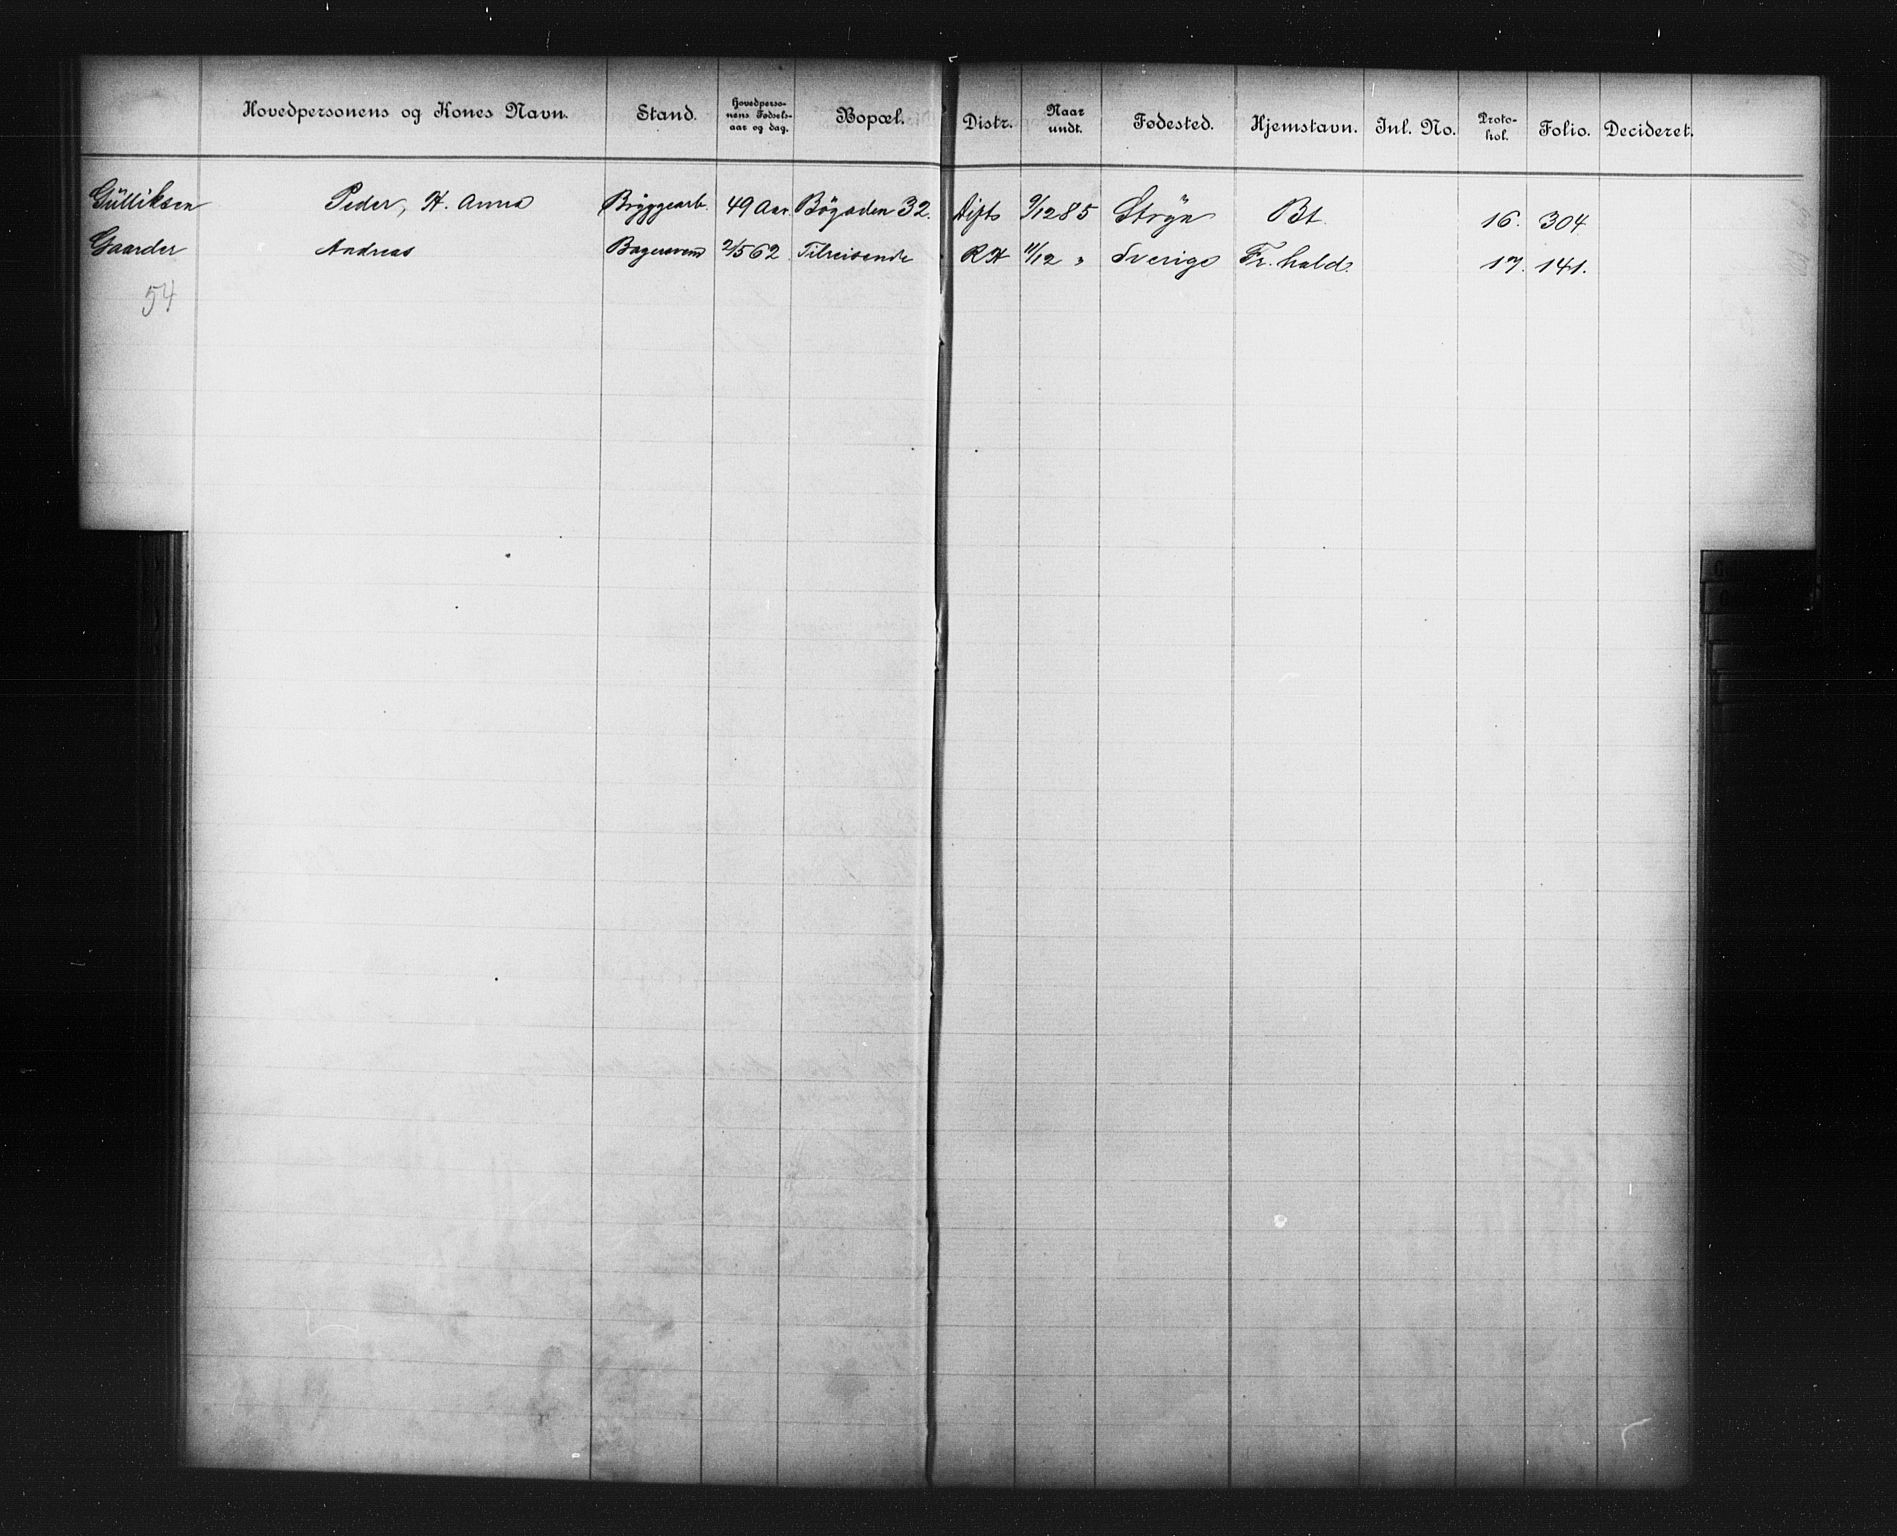 Hovedpersonens og Kones Navn. Stand. Hovedperso-nens Fødsels-aar og dag. Bopæl. Distr. Naar undt. Fødested. Hjemstavn. Inl. No. Proto-kol. Folio. Decideret.
Gulliksen Peder, H. Anna Bryggearb. 49 Aar Bøgaden 32. 9/12 85 Stryn Bt. 16. 304
Gaarder Andreas Bagersvend 2/5 62 Tilreisende RH 11/12 " Sverige Fr.hald. 17. 141.
54